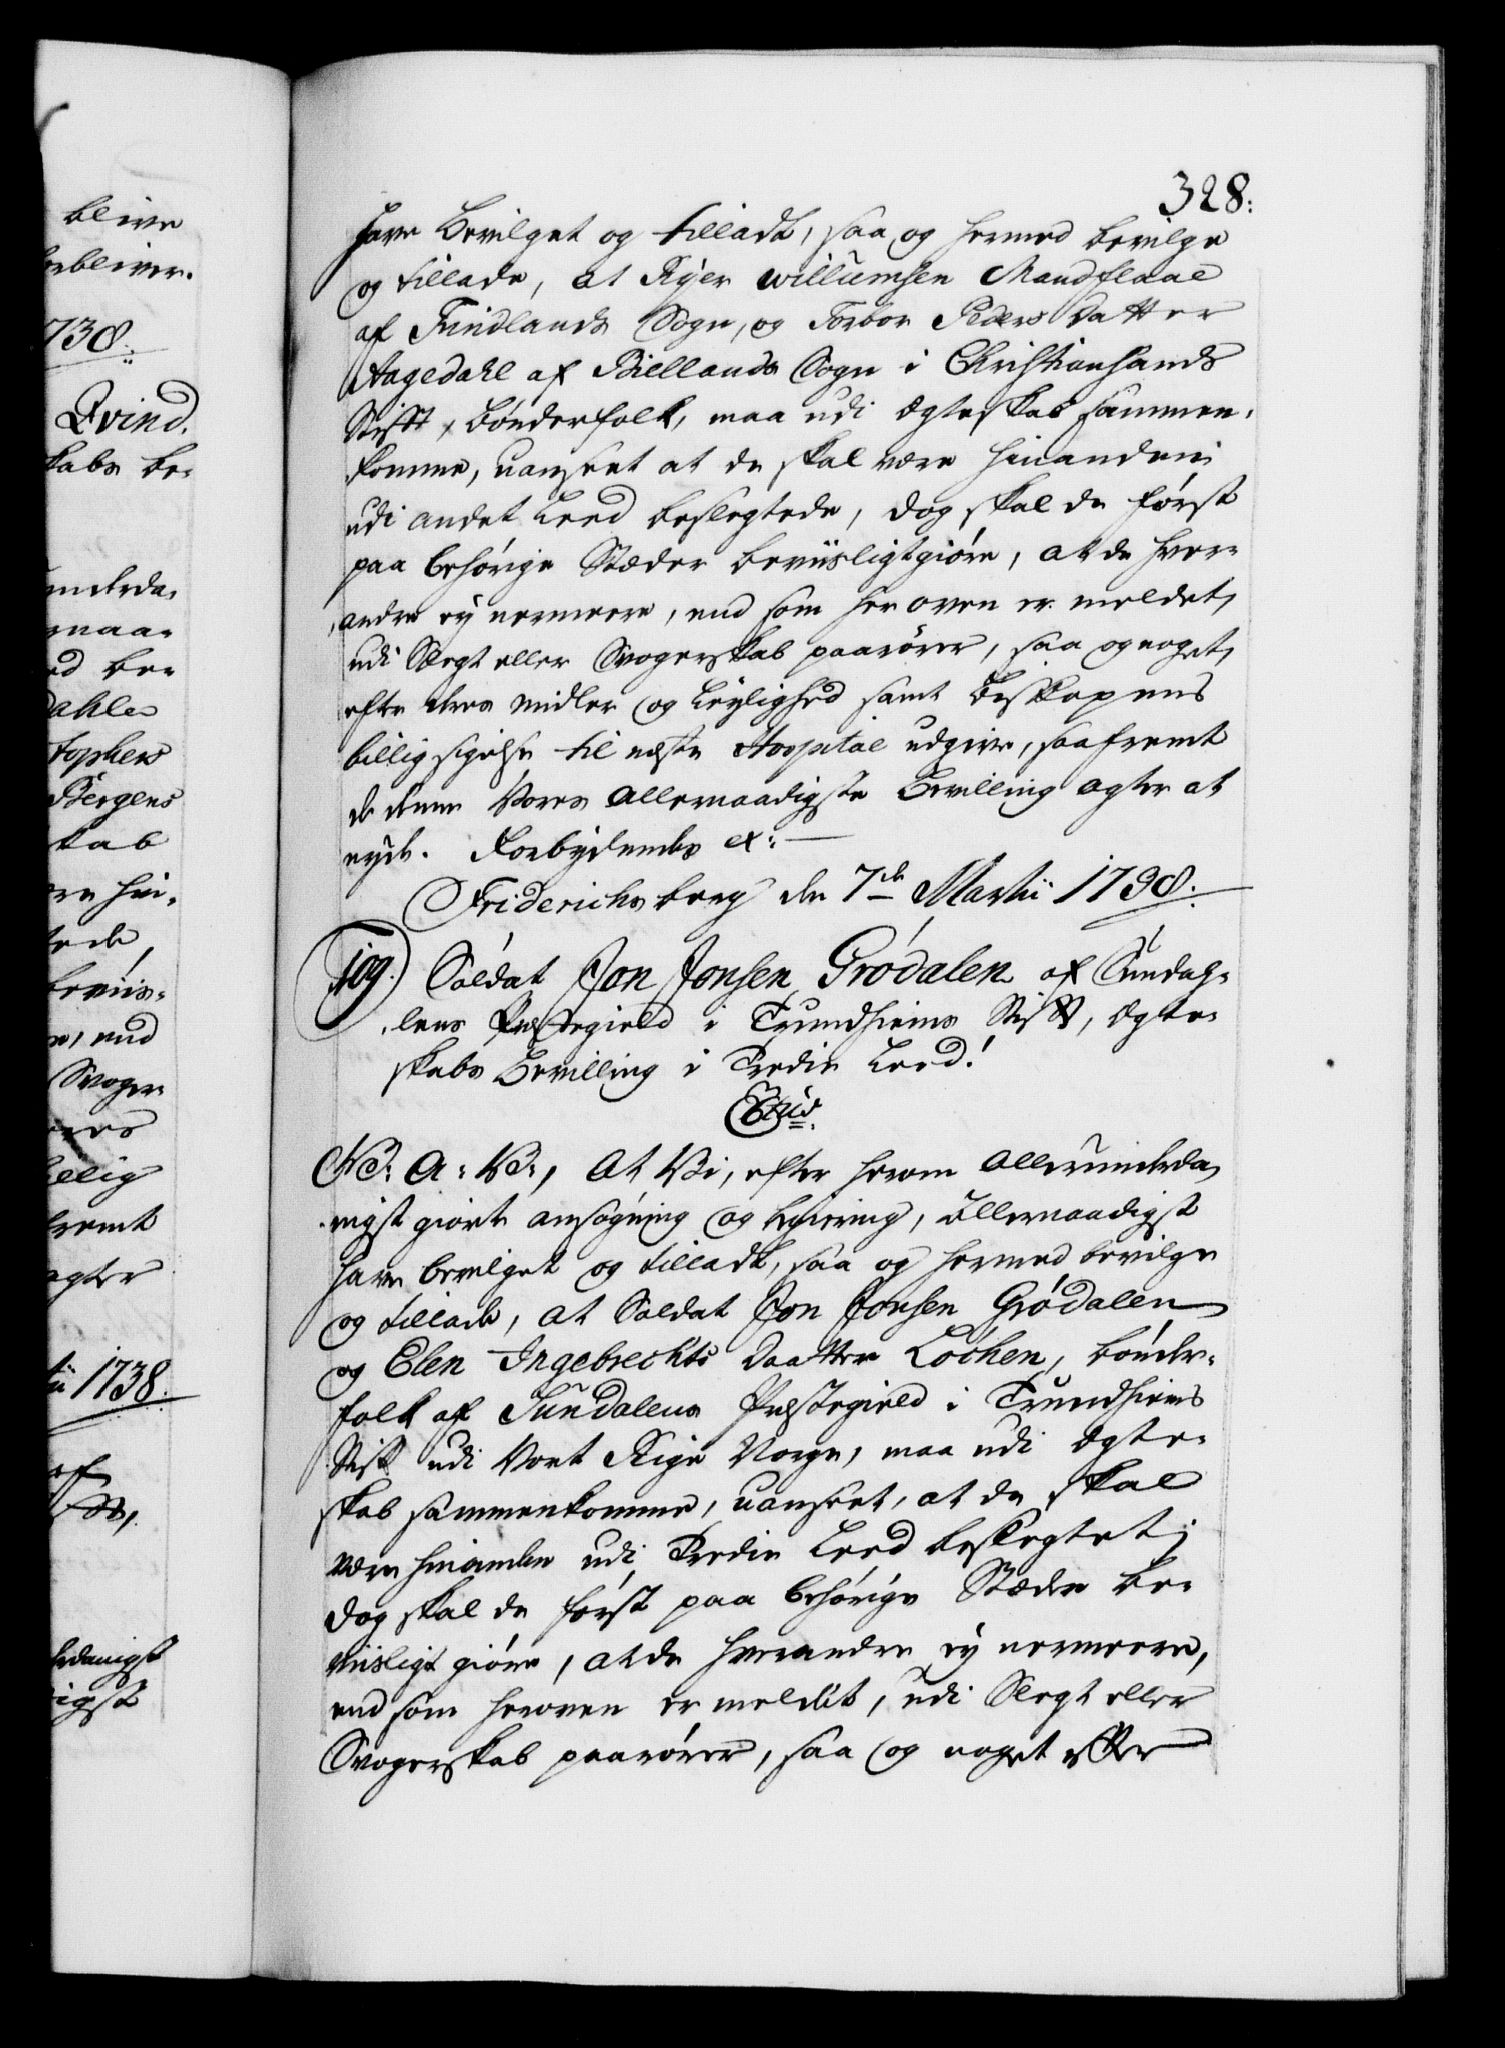 328.
have bevilget og tilladt, saa og hermed bevilge
og tillade, at Ryer Willumsen Mandflaae
af Findlands Sogn, og Torbor Peders Datter
Aagedahl af Biellands Sogn i Christiansands
Stift, bønderfolk, maa udi Ægteskab sammen-
komme, uanseet at de skal være hinanden
udi andet Leed beslegtede, dog skal de først
paa behørige Stæder beviisligtgiøre, at de hver-
andre ey nermere, end som her oven er meldet,
udi Slegt eller Svogerskab paarører, saa og noget,
efter deres midler og Leylighed samt Biskopens
billig sigelse til neste Hospital udgive, saafremt
de denne Vores allernaadigste Bevilling agter at
nyde. Forbydendes etc:
Friderichsberg den 7de Martii 1738.
109. Soldat Jon Jonsen Grødalen af Sundah-
lens Præstegield i Trundhiems Stift, Ægte-
skabs Bevilling i Tredie Leed.
C. A. V., At Vi, efter herom allerunderda-
nigst giorte ansøgning og begiering, allernaadigst
have bevilget og tilladt, saa og hermed bevilge
og tillade, at Soldat Jon Jonsen Grødalen
og Elen Ingebrechts Daatter Løchen, bønder-
folk af Sundalens Præstegield i Trundhiems
Stift udi Vort Rige Norge, maa udi Ægte-
skab sammenkomme, uanseet, at de skal
være hinanden udi Tredie Leed beslegtet;
dog skal de først paa behørige Stæder be-
viisligt giøre, at de hverandre ey nermere,
end som heroven er meldet, udi Slegt eller
Svogerskab paarører, saa og noget efter
blive
738.
Evind.
skabs be-
maa-
be-
Dahle
tophers
Bergens
skab
hin-
beviis-
end
Svoger
billig
fremt
agter
1738.
af